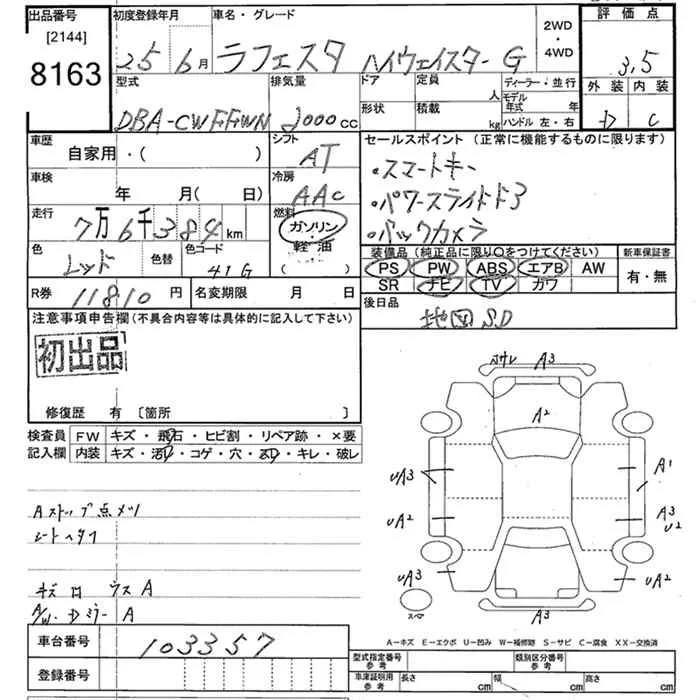 出品番号 初度登録年月 車名・グレード 2WD・4WD 評価点
[2144]
8163
25 6月 ラフェスタ ハイウェイスター G 3,5
型式 排気量 ドア 定員 人 ディーラー・並行 外装 内装
モデル年式 年
DBA-CWFFWN 2000cc 形状 積載 kg ハンドル 左・右 D C
車歴 自家用・( ) シフト AT
セールスポイント (正常に機能するものに限ります)
・スマートキー
・パワースライドドア
・バックカメラ
車検 年 月( 日) 冷房 AAC
走行 7万6千384km 燃料 ガソリン・軽油 ( )
色 レッド 色替 色コード 41G
装備品 (純正品に限り〇をつけてください) 新車保証書
PS PW ABS エアB AW 有・無
SR ナビ TV カワ
R券 11810円 名変期限 月 日
後日品 地図SD
注意事項申告欄 (不具合内容等は具体的に記入して下さい)
初出品
修復歴 有 [箇所 ]
検査員記入欄 FW キズ・飛石・ヒビ割・リペア跡・×要
内装 キズ・汚・コゲ・穴・・キレ・破レ
Aストップ点メツ
シートヘタリ
キズ 凹 ウス A
A/W・Dミラー A
A3
A2
UA3 A1
UA2 A3 U2
UA3 UA2
スペア A3
A-キズ E-エクボ U-凹み W-補修跡 S-サビ C-腐食 XX-交換済
車台番号 103357
登録番号
型式指定番号 参考 類別区分番号 参考
車庫証明用 参考 長さ cm 幅 cm 高さ cm